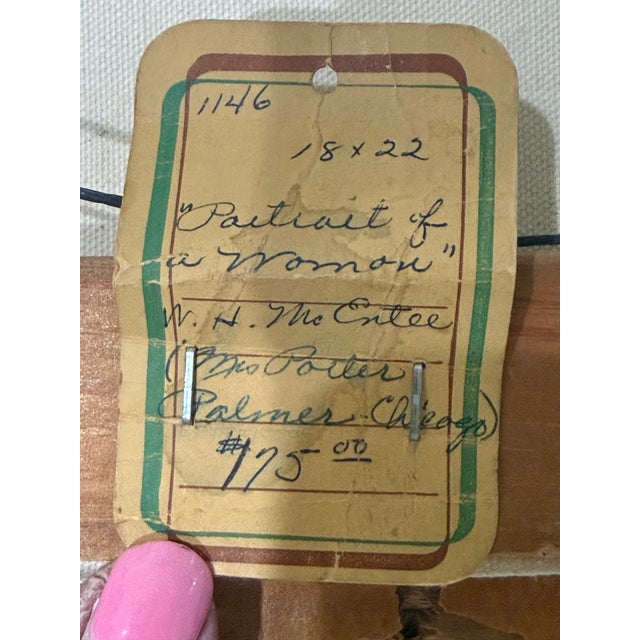 1146
18 x 22
"Portrait of
a Woman"
W. H. McEntee
(Mrs Potter
Palmer Chicago)
$175 00